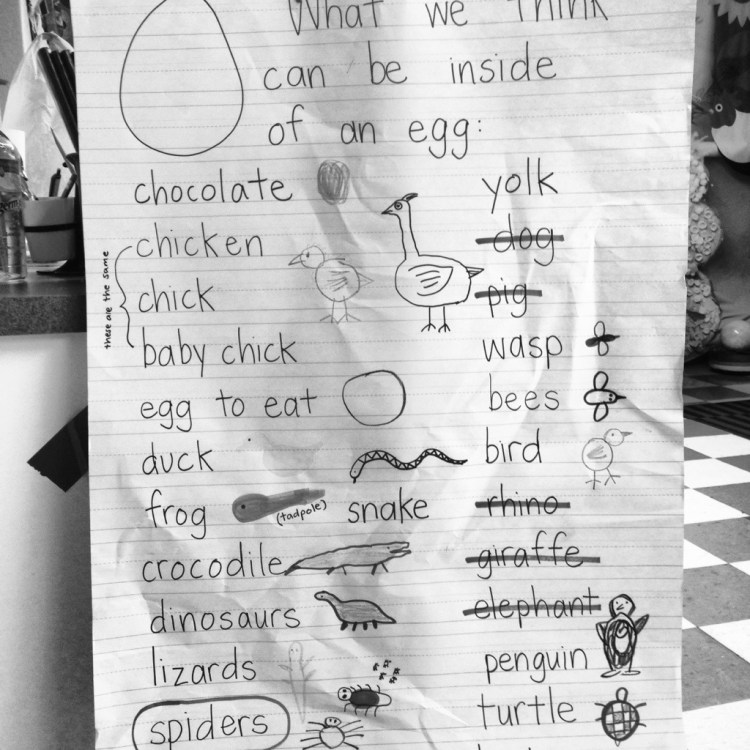 What we think
can be inside
of an egg:
chocolate
chicken
chick
baby chick
these are the same
egg to eat
duck
frog
(tadpole)
snake
crocodile
dinosaurs
lizards
spiders
yolk
dog
pig
wasp
bees
bird
rhino
giraffe
elephant
penguin
turtle